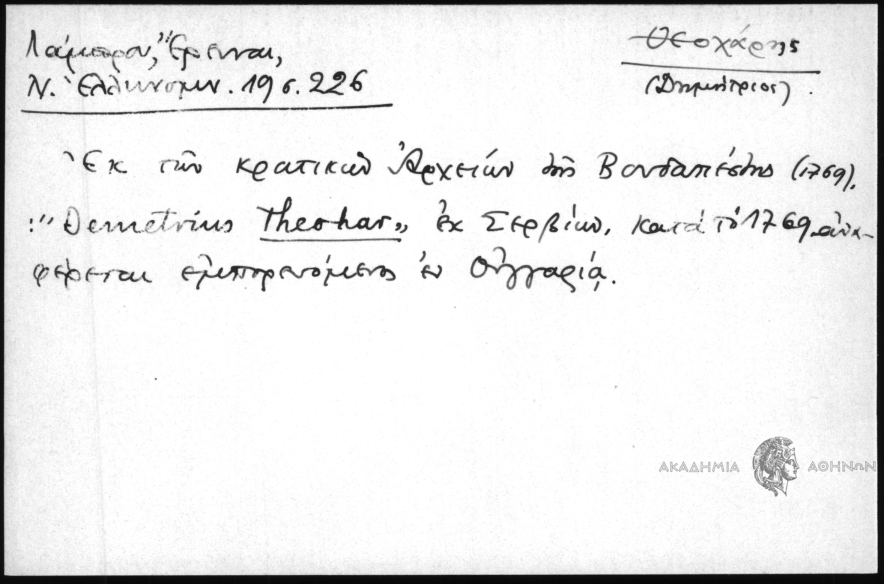 Λάμπρου, Ἔρευναι,
Ν. Ἑλληνομν. 19 σ. 226
Θεοχάρης
(Δημήτριος)
Ἐκ τῶν κρατικῶν Ἀρχείων τῆς Βουδαπέστης (1769).
:"Demetrius Theohar„ ἐκ Σερβίων, κατά τό 1769 ἀνα-
φέρεται ἐμπορευόμενος ἐν Οὑγγαρίᾳ.
ΑΚΑΔΗΜΙΑ ΑΘΗΝΩΝ